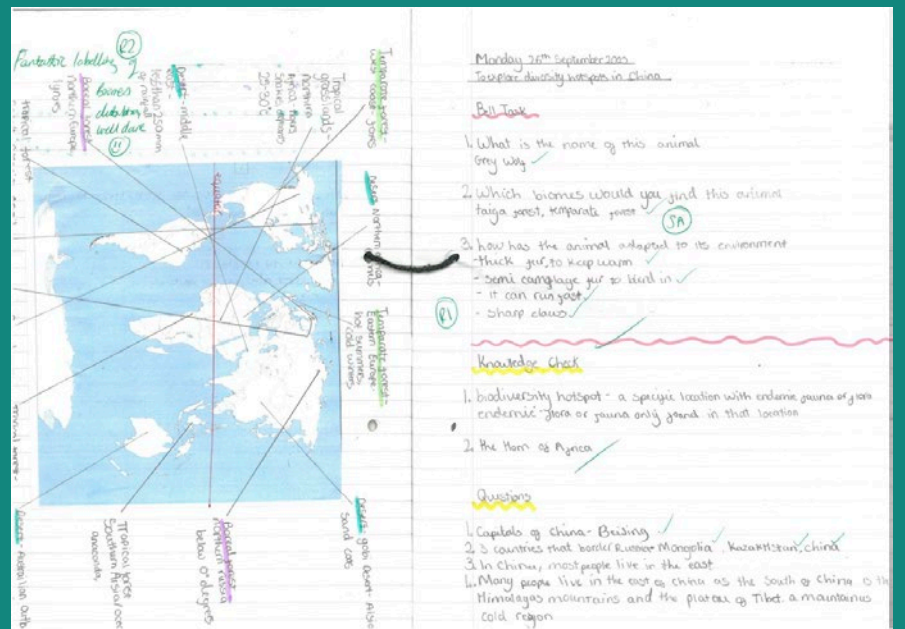 Fantastic labelling of
biomes
well done
R2
Temperate forest-
West coast - 30°S
Tropical
grasslands-
Northern
Africa. Lions
25-30°C
Desert - middle
east-
less than 250mm
of rainfall
Boreal forest
northern Europe,
lynxs
tropical forest
equator
Desert Northern
Temperate forest-
Eastern Europe-
hot summers,
cold winters
Desert gobi Desert-
Sand cats
Boreal forest
northern russia
below 0°degrees
Tropical forest
Southern
anaconda,
Desert - Australian outb
Monday 26th September 2005
To explore diversity hotspots in China
Bell Task
1. What is the name of this animal
Grey Wolf
2. Which biomes would you find this animal
taiga forest, temparate forest
SA
3. how has the animal adapted to its environment
-thick fur, to keep warm
- semi camglage fur to blend in
- it can run fast
- sharp claws
R1
Knowledge Check
1. biodiversity hotspot - a specific location with endemic fauna or flora
endemic - flora or fauna only found in that location
2. the Horn of Africa
Questions
1. Capitals of China - Beijing
2. 3 countries that border Russia- Mongolia, Kazakhstan, china
3. In China, most people live in the east
4. Many people live in the east of china as the South of China is th
Himalayas mountains and the plateau of Tibet. a mountainus
cold region